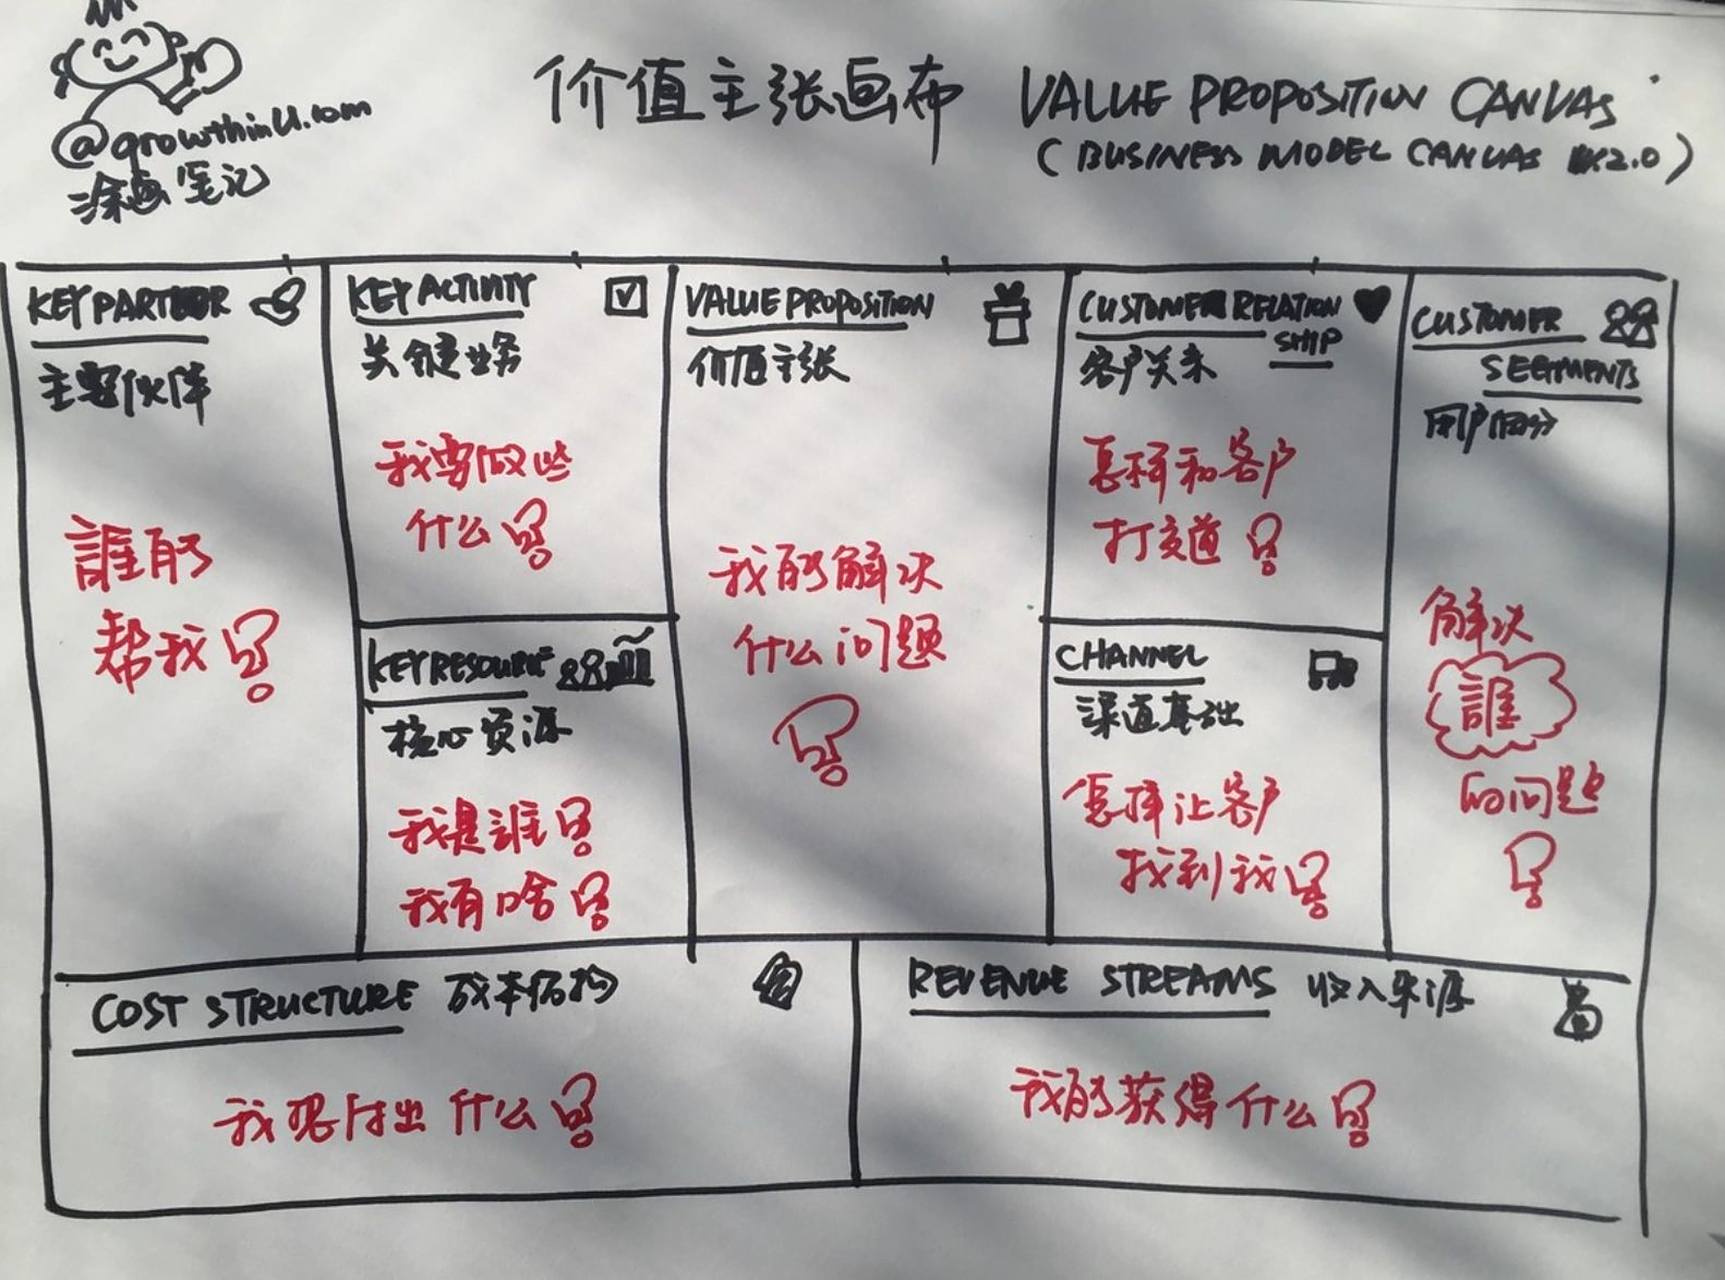 @growthinU.com
涂画笔记
价值主张画布 VALUE PROPOSITION CANVAS
(BUSINESS MODEL CANVAS 2.0)
KEY PARTNER
主要伙伴
誰能
帮我?
KEY ACTIVITY
关键业务
我要做些
什么?
KEY RESOURCE
核心资源
我是誰?
我有啥?
VALUE PROPOSITION
价值主张
我能解决
什么问题
?
CUSTOMER RELATION
SHIP
客户关系
怎样和客户
打交道?
CHANNEL
渠道基础
怎样让客户
找到我?
CUSTOMER
SEGMENTS
用户细分
解决
誰
的问题
?
COST STRUCTURE 成本结构
我要付出什么?
REVENUE STREAMS 收入来源
我能获得什么?